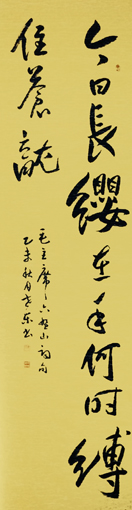 今日長纓在手何时縛
住蒼龍
毛主席六盘山詞句
乙未秋月老东书